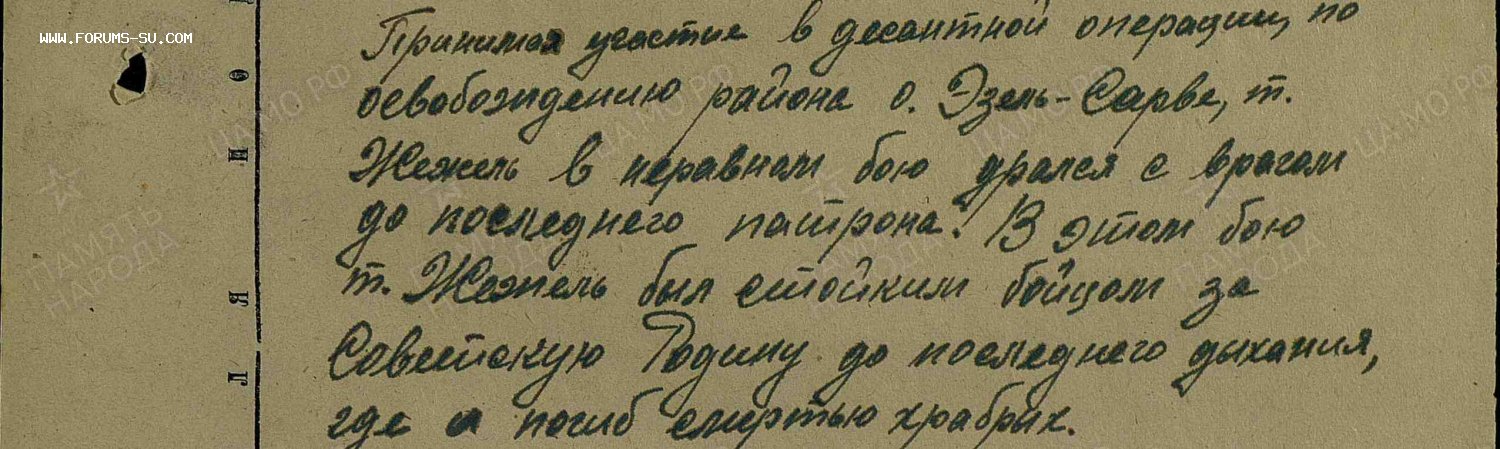 WWW.FORUMS-SU.COM
Принимая участие в десантной операции, по
освобождению района о. Эзель-Сарве, т.
Жежель в неравном бою дрался с врагом
до последнего патрона. В этом бою
т. Жежель был стойким бойцом за
Советскую Родину до последнего дыхания,
где и погиб смертью храбрых.
О
И
Я
Л
ЦАМО РФ
ЦАМО РФ
ЦАМО РФ
ЦАМО РФ
ПАМЯТЬ
НАРОДА